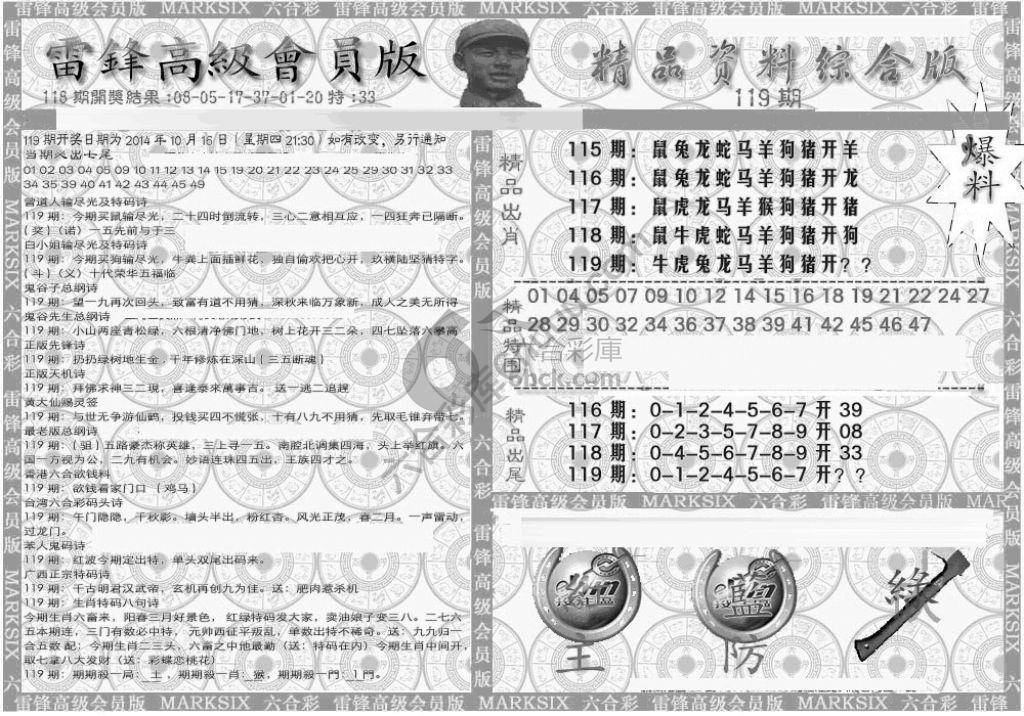 雷锋高级会员版 MARKSIX 六合彩 雷锋高级会员版 MARKSIX 六合彩 雷锋高级会员版 MARKSIX 六合彩 雷锋
雷鋒高級會員版
精品资料综合版
118期開獎結果:08-05-17-37-01-20特:33
119期
119期开奖日期为2014年10月16日(星期四21:30)如有改变,另行通知
当期必出七尾
01 02 03 04 05 09 10 11 12 13 14 15 19 20 21 22 23 24 25 29 30 31 32 33
34 35 39 40 41 42 43 44 45 49
曾道人输尽光及特码诗
119期:今期买鼠输尽光,二十四时倒流转,三心二意相互应,一四狂奔已隔断。
(奖)(诺)一五先前与于三
白小姐输尽光及特码诗
119期:今期买狗输尽光,牛粪上面插鲜花,独自偷欢把心开,玖横陆坚猜特字。
(斗)(义)十代荣华五福临
鬼谷子总纲诗
119期:望一九再次回头,致富有道不用猜,深秋来临万象新,成人之美无所得
鬼谷先生总纲诗
119期:小山两座青松绿,六根清净佛门地,树上花开三二朵,四七坠落六攀高
正版先锋诗
119期:扔扔绿树地生金,千年修炼在深山(三五断魂)
正版天机诗
119期:拜佛求神三二現,喜逢泰来萬事吉。送一逃二追趕
黄大仙赐灵签
119期:与世无争游仙鹤,投钱买四不慌张,十有八九不用猜,先取毛锥弃带七。
最老版总纲诗
119期:(驵)五路豪杰称英雄,三上寻一五。南腔北调集四海,头上举红旗。六
国一方视为公,二九有机会。妙语连珠四五出,王族四才之。
香港六合欲钱料
119期:欲钱看家门口 (鸡马)
台湾六合彩码头诗
119期:午门隐隐,千秋影。墙头半出,粉红杏。风光正茂,春二月。一声雷动,
过龙门。
苯人鬼码诗
119期:红波今期定出特,单头双尾出码来。
广西正宗特码诗
119期:千古明君汉武帝,玄机再创九为佳。送:肥肉惹杀机
119期:生肖特码八句诗
今期生肖六畜来,阳春三月好景色, 红绿特码发大家,卖油娘子变三八。二七六
五本期连,三门有数必中特, 元帅西征平叛乱,单数出特不稀奇。送:九九归一
合五数 配:今期生肖二三头,六畜之中他最勤(送:特码在内)今期生肖中间开,
取七拿八大发财(送:彩蝶恋桃花)
119期:期期殺一局:主,期期殺一肖:猴,期期殺一門:1門。
精品出肖
115期:鼠兔龙蛇马羊狗猪开羊
116期:鼠兔龙蛇马羊狗猪开龙
117期:鼠虎龙马羊猴狗猪开猪
118期:鼠牛虎蛇马羊狗猪开狗
119期:牛虎兔龙马羊狗猪开??
爆料
精品特围
01 04 05 07 09 10 12 14 15 16 18 19 21 22 24 27
28 29 30 32 34 36 37 38 39 41 42 45 46 47
六合彩庫
6hck.com
精品出尾
116期:0-1-2-4-5-6-7开39
117期:0-2-3-5-7-8-9开08
118期:0-4-5-6-7-8-9开33
119期:0-1-2-4-5-6-7开??
雷锋高级会员版 MARKSIX 六合彩 雷锋高级会员版
主
防
雷锋高级会员版 MARKSIX 六合彩 雷锋高级会员版 MARKSIX 六合彩 雷锋高级会员版 MARKSIX 六合彩 雷锋